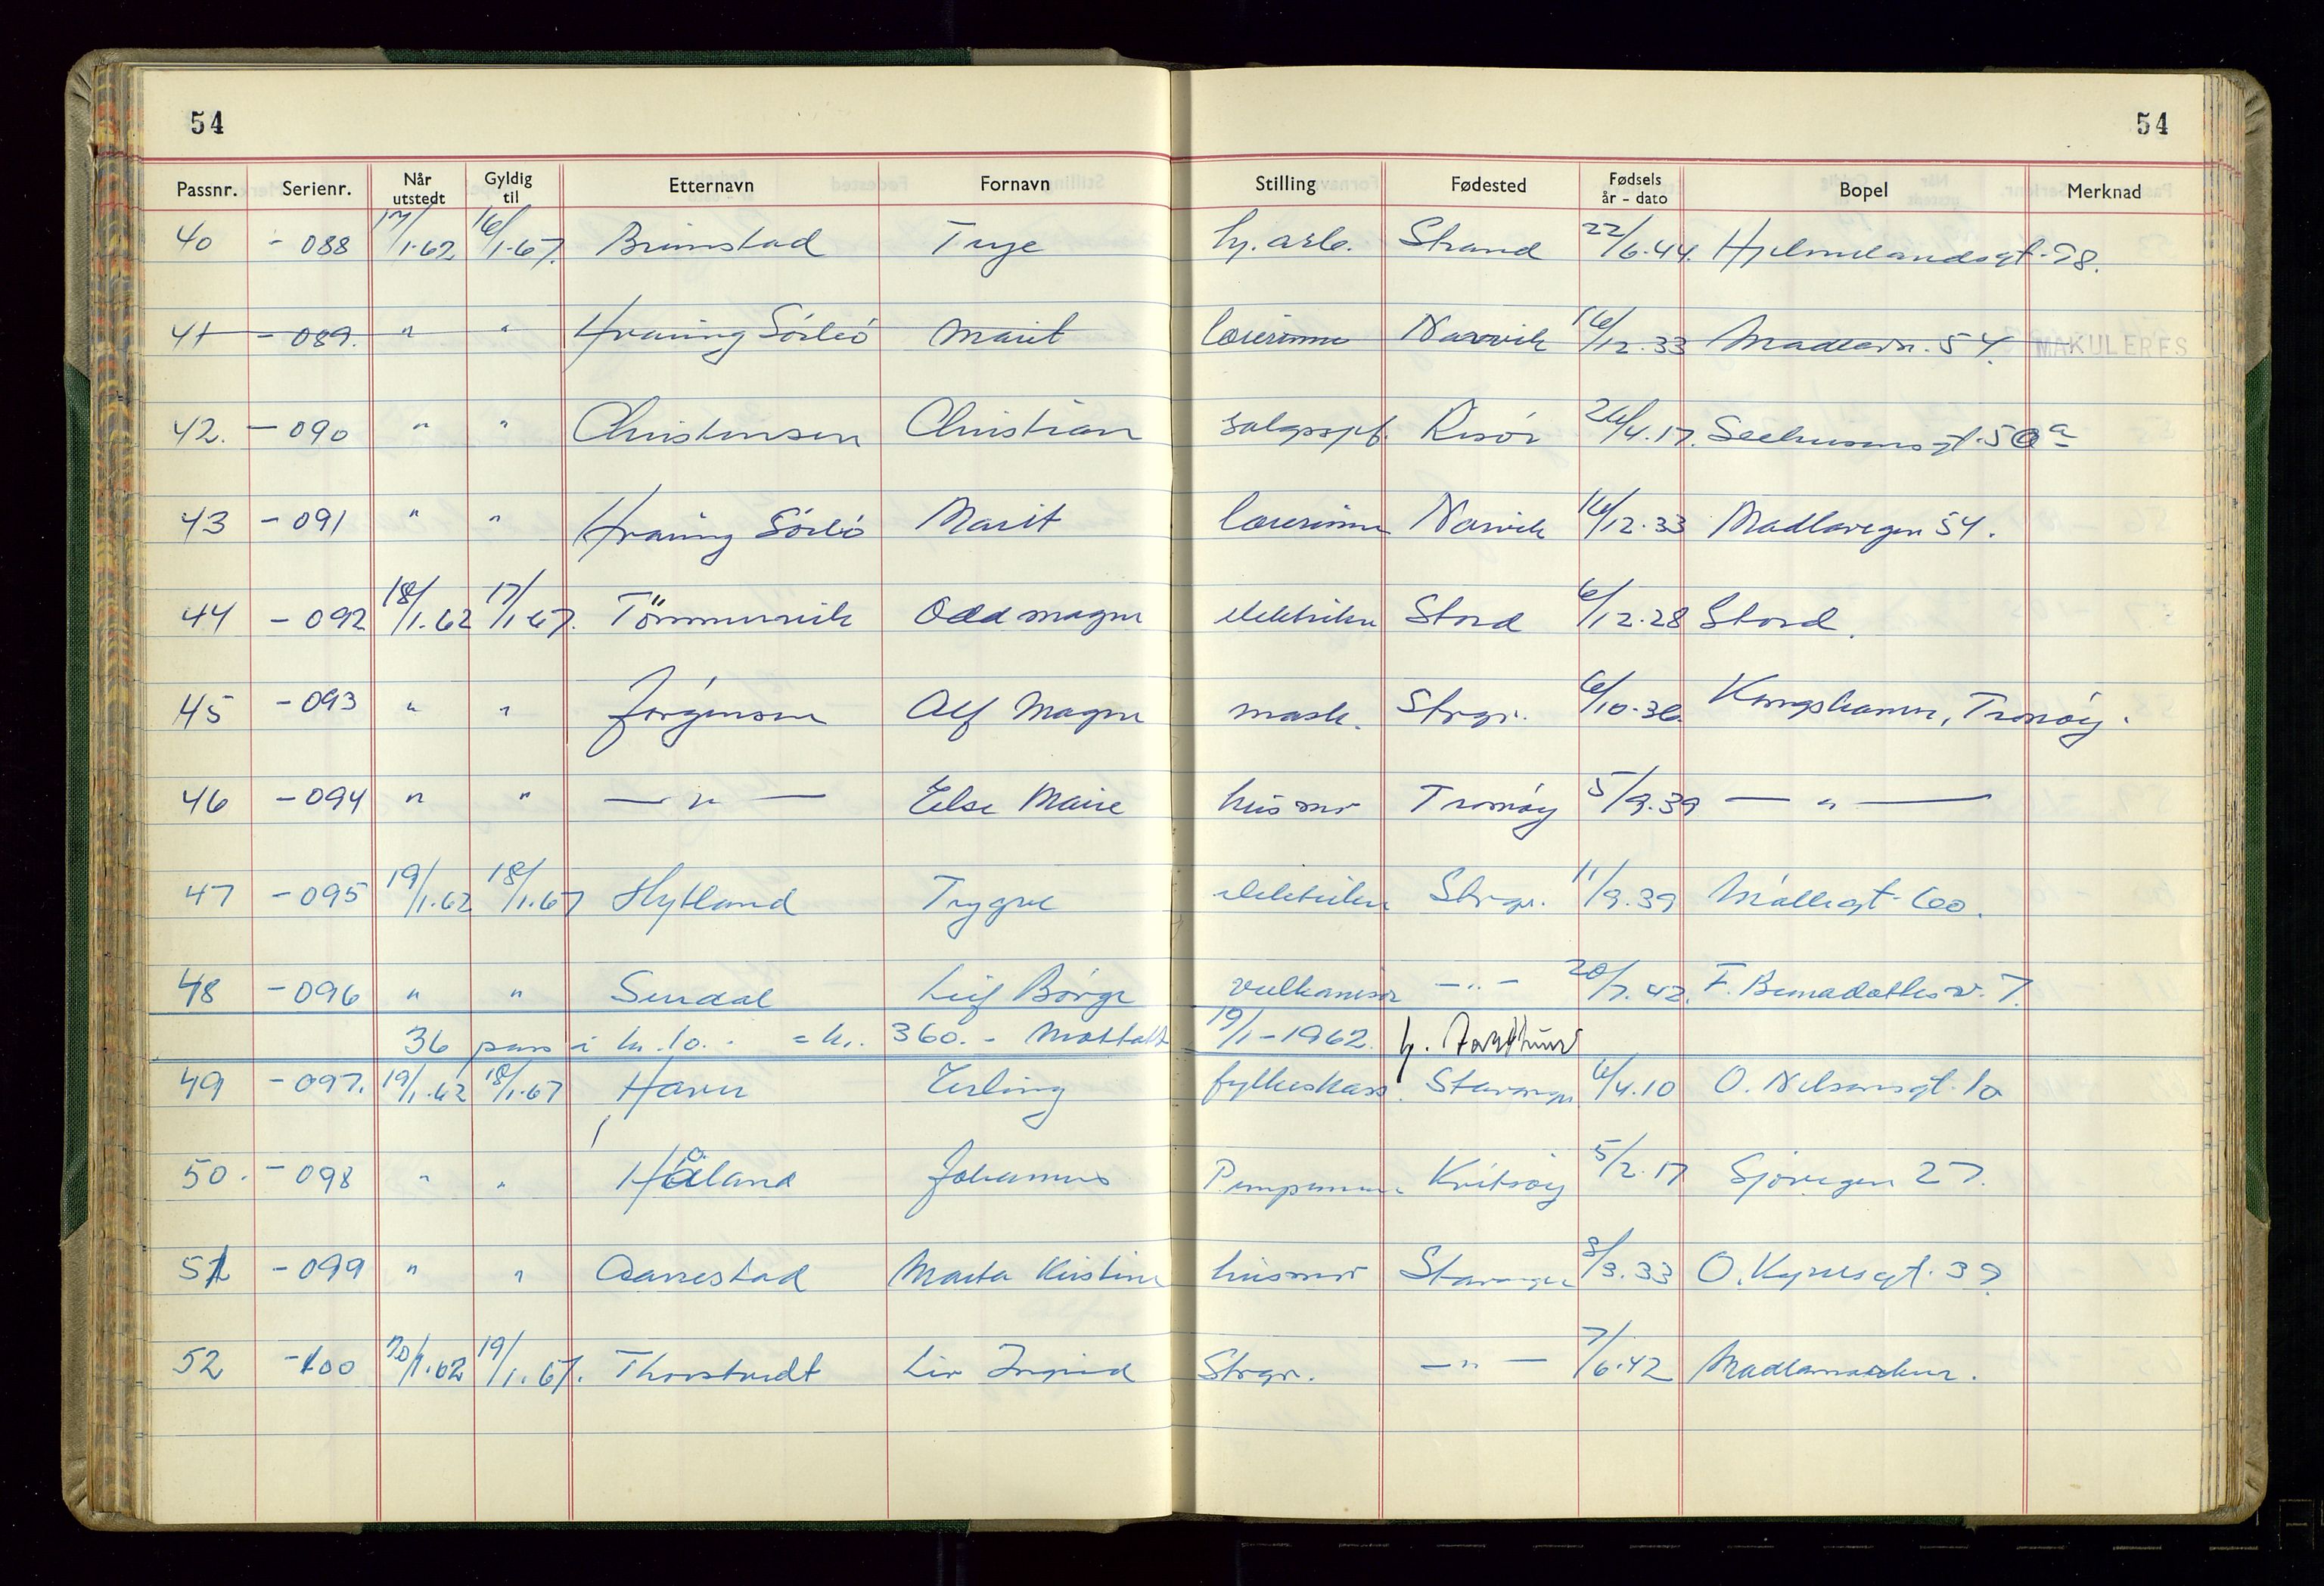 54 54
Passnr. Serienr. Når utstedt Gyldig til Etternavn Fornavn Stilling Fødested Fødsels år - dato Bopel Merknad
40 - 088 17/1.62 16/1.67. Brimstad Terje hj. arb. Strand 22/6.44. Hjelmelandsgt. 78.
41 - 089. " " Hvaring Sörbö Marit lærerinne Narvik 16/12.33 Madlavn. 54. MAKULERES
42. - 090 " " Christensen Christian salgssjef. Risör 26/4.17. Seehusensgt. 50a
43 - 091 " " Hvaring Sörbö Marit lærerinne Narvik 16/12.33 Madlavegen 54.
44 - 092 18/1.62 17/1.67. Tömmervik Odd Magne elektriker Stord 6/12.28 Stord.
45 - 093 " " Jörgensen Alf Magne mask. Stvgr. 6/10.36 Kongshamn, Tromöy.
46 - 094 " " — " — Else Marie husmor Tromöy 5/9.39 — " —
47 - 095 19/1.62 18/1.67 Hytland Trygve elektriker Stvgr. 11/9.39 Möllegt. 60.
48 - 096 " " Sundal Leif Börge vulkanisör - " - 20/7.42. F. Bernadottesv. 7.
36 pass à kr. 10.- = kr. 360.- Mottatt 19/1-1962.
49 - 097. 19/1.62 18/1.67 Haver Erling fylkeskass. Stavanger 6/4.10 O. Nilsensgt. 10
50. - 098 " " Håland Johannes Pumpemann Kvitsöy 5/2.17 Sjövegen 27.
51 - 099 " " Aarrestad Marta Kristine husmor Stavanger 3/3.33 O. Kyrresgt. 39
52 - 100 20/1.62 19/1.67. Thorstvedt Liv Ingrid Stvgr. - " - 7/6.42 Madlamarken.